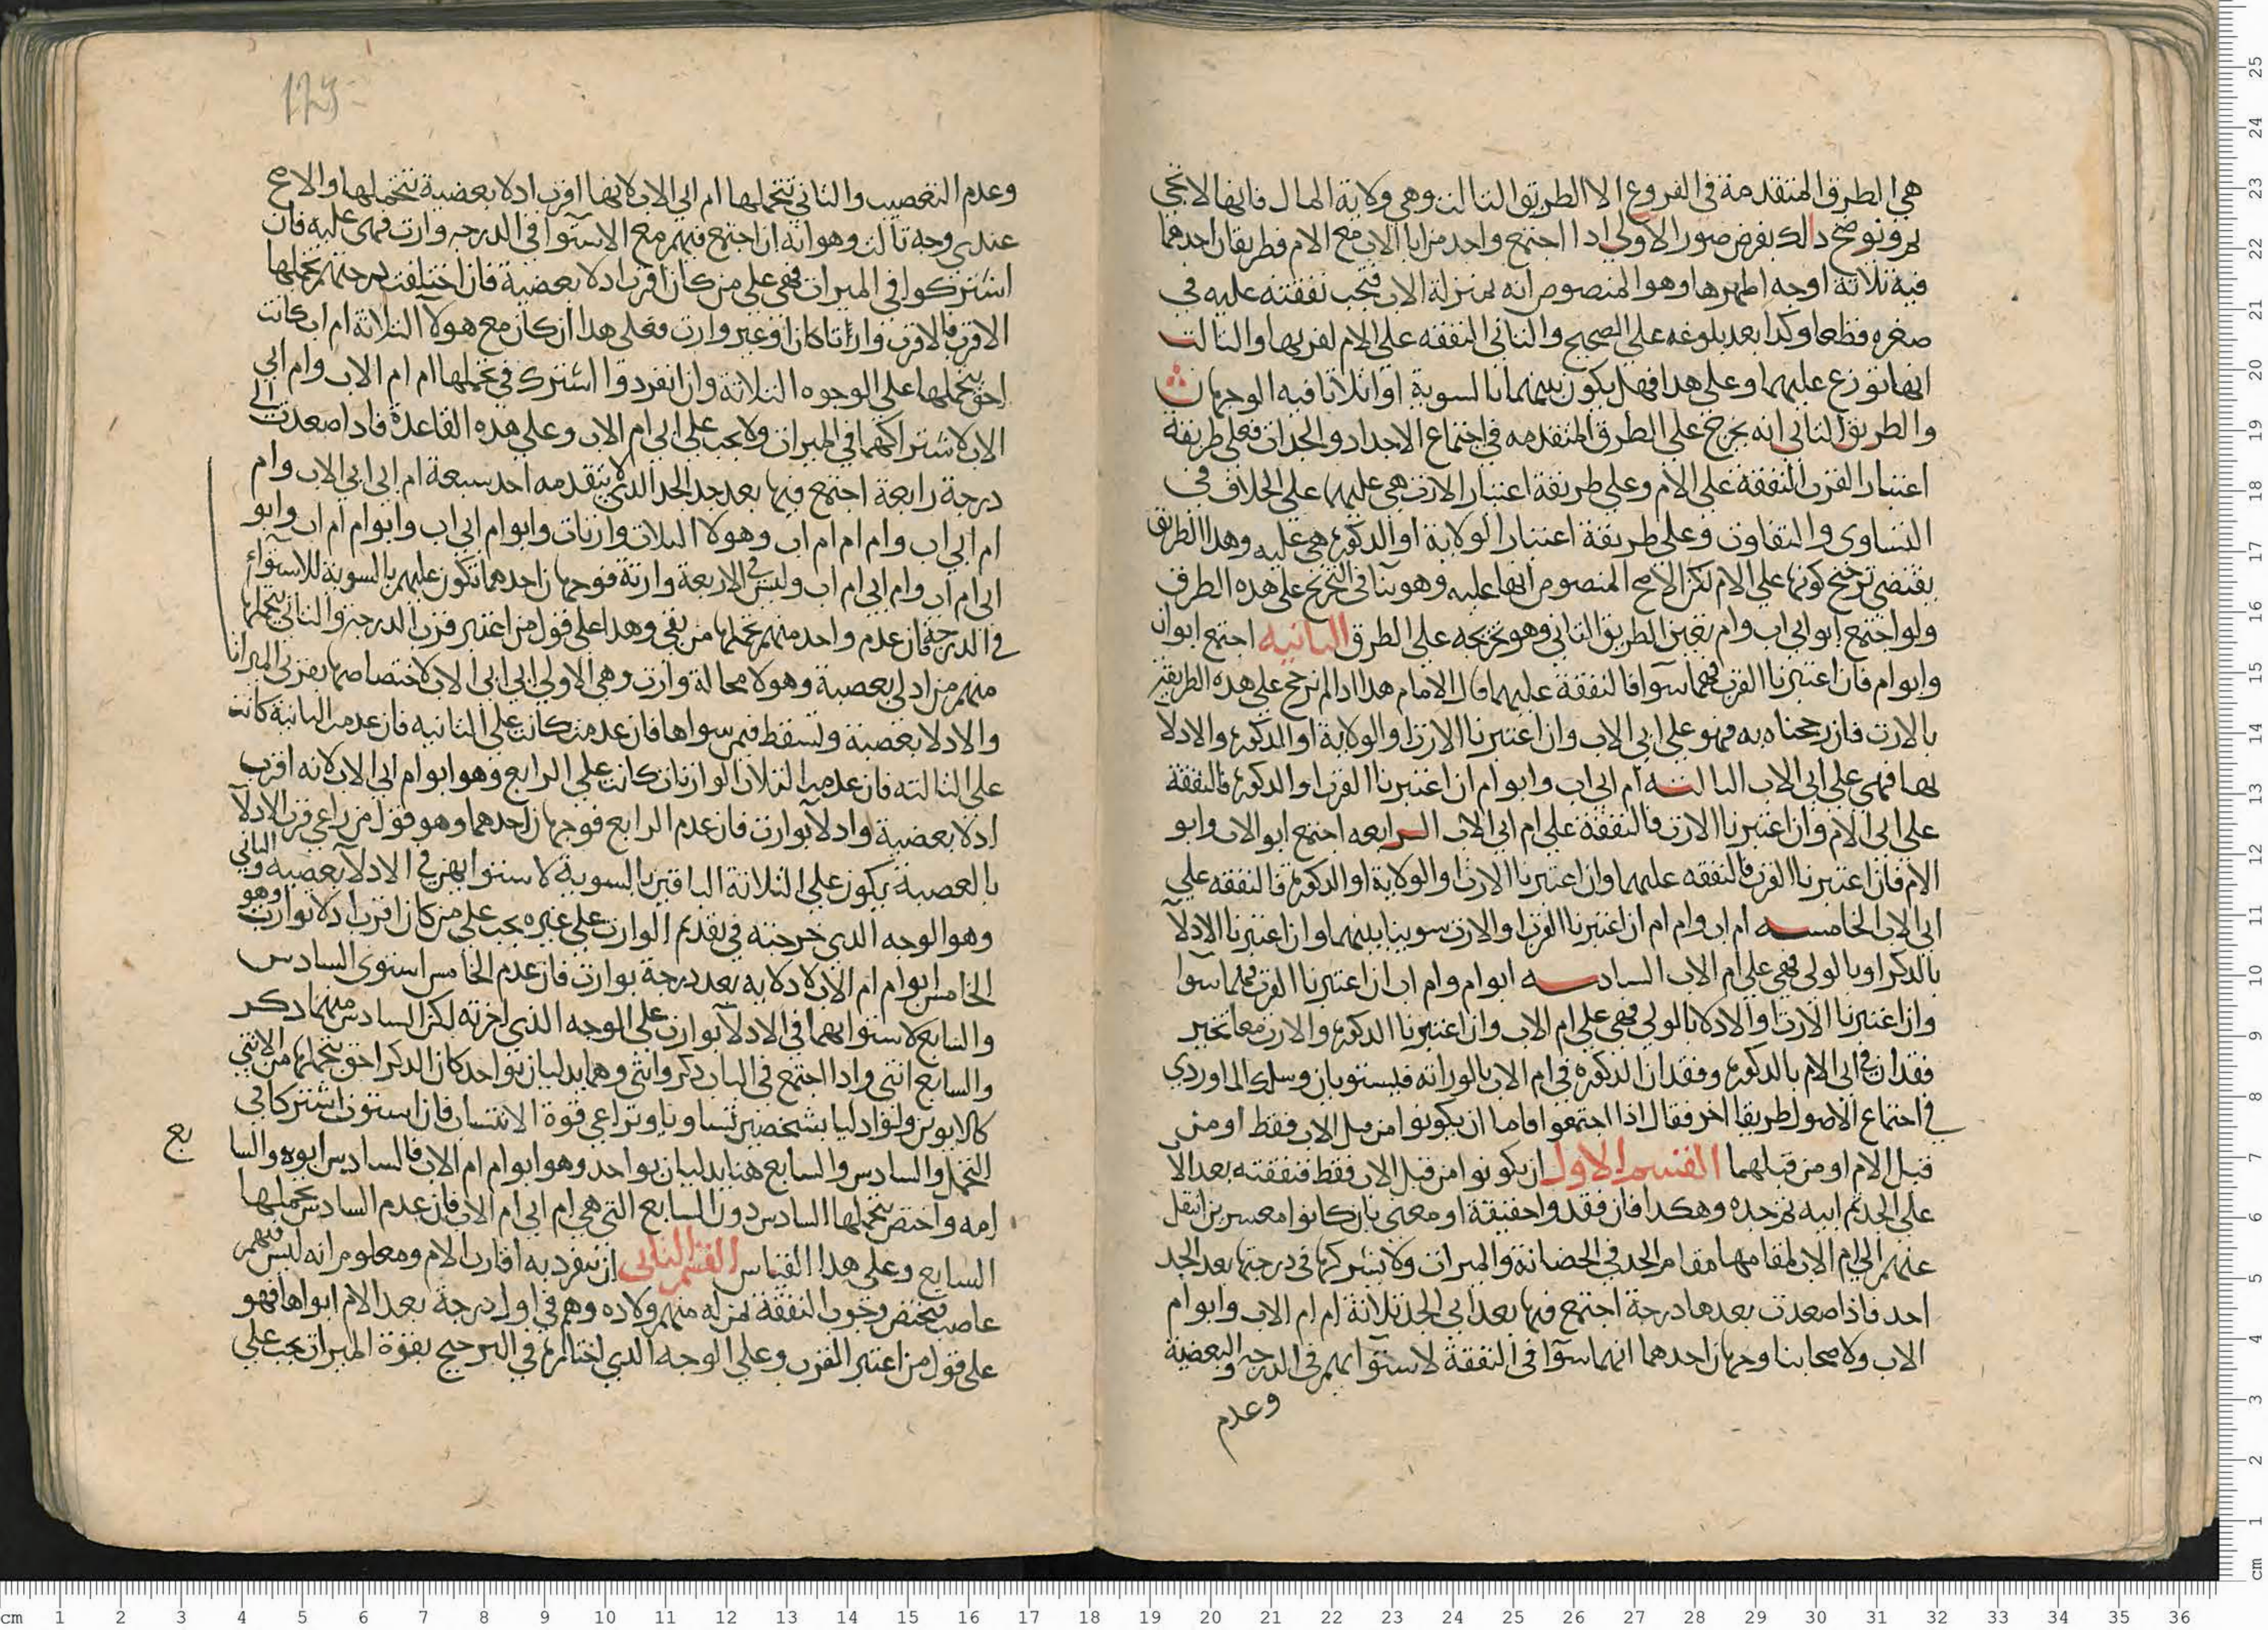 هي الطرق المتقدمة في الفروع الا الطريق الثالث وهي ولاية المال فانها لا تجي
لهم ونوضح ذالك بفرض صور الاولى اذا اجتمع واحد من ابا الاب مع الام فطريقان احدهما
فيه ثلاثة اوجه اظهرها وهو المنصوص انه بمنزلة الاب فتجب نفقته عليه في
صغره قطعا وكذا بعد بلوغه على الصحيح والثاني النفقه على الام لقربها والثالث
انها توزع عليهما وعلى هذا فهل يكون بينهما بالسوية او اثلاثا فيه الوجهان
والطريق الثاني انه يخرج على الطرق المتقدمه في اجتماع الاجداد والجدات فعلى طريقة
اعتبار القرب النفقة على الام وعلى طريقة اعتبار الارث هي عليهما على الخلاف في
التساوي والتفاوت وعلى طريقة اعتبار الولاية او الذكورة هي عليه وهذا الطريق
يقتضي ترجيح كونها على الام لكن الاصح المنصوص انها عليه وهو ينافي التخريج على هذه الطرق
ولو اجتمع ابو ابي اب وام تعين الطريق الثاني وهو تخريجه على الطرق الثانيه اجتمع ابو اب
وابو ام فان اعتبرنا القرب فهما سوآ فالنفقة عليهما قال الامام هذا اذا لم نرجح على هذه الطريقة
بالارث فان رجحناه به فهو على ابي الاب وان اعتبرنا الارث او الولاية او الذكورة والادلآ
بها فهي على ابي الاب الثالثه ام ابي اب وابو ام ان اعتبرنا القرب او الذكورة فالنفقة
على ابي الام وان اعتبرنا الارث فالنفقة على ام ابي الاب الرابعه اجتمع ابو الاب وابو
الام فان اعتبرنا القرب فالنفقه عليهما وان اعتبرنا الارث او الولاية او الذكورة فالنفقه على
ابي الاب الخامسه ام اب وام ام ان اعتبرنا القرب او الارث سوينا بينهما وان اعتبرنا الادلآ
بالذكر او بالولي فهي على ام الاب السادسه ابو ام وام اب ان اعتبرنا القرب فهما سوا
وان اعتبرنا الارث او الادلا بالولي فهي على ام الاب وان اعتبرنا الذكورة والارث معا تخير
فقدان في ابي الام بالذكورة وفقدان الذكوره في ام الاب بالوراثه فيستويان وسلك الماوردي
في اجتماع الاصول طريقا اخر فقال اذا اجتمعوا فاما ان يكونوا من قبل الاب فقط او من
قبل الام او من قبلهما القسم الاول ان يكونوا من قبل الاب فقط فنفقته بعد الا
على الجد ثم ابيه ثم جده وهكذا فان فقدوا حقيقة او معنى بان كانوا معسرين انتقل
عنهم الى ام الاب لمقامها مقام الجد في الحضانة والميراث ولا يشركها في درجتها بعد الجد
احد فاذا صعدت بعدها درجة اجتمع فيها بعد ابي الجد ثلاثة ام ام الاب وابو ام
الاب ولاصحابنا وجهان احدهما انهما سوآ في النفقة لاستوآئهم في الدرجه والبعضية
وعدم
وعدم التعصيب والثاني يتحملها ام ابي الاب لانها اقرب ادلا بعضية بتحملها والاصح
عندي وجه ثالث وهو انه ان اجتمع فيهم مع الاستوآ في الدرجه وارث فهي عليه فان
اشتركوا في الميراث فهي على من كان اقرب ادلا بعضبة فان اختلفت درجتهم تحملها
الاقرب فالاقرب وارثا كان او غير وارث فعلى هذا ان كان مع هولآ الثلاثة ام اب كانت
احق بتحملها على الوجوه الثلاثة وان انفردوا اشترك في تحملها ام ام الاب وام ابي
الاب لاشتراكهما في الميراث ولا يجب على ابي ام الاب وعلى هذه القاعدة فاذا صعدت الى
درجة رابعة اجتمع فيها بعد جد الجد الذي لا يتقدمه احد سبعة ام ابي ابي الاب وام
ام ابي اب وام ام ام اب وهولا الثلاث وارثات وابو ام ابي اب وابو ام ام اب وابو
ابي ام اب وام ابي ام اب وليس في الاربعة وارثة فوجهان احدهما تكون عليهم بالسوية للاستوآء
في الدرجة فان عدم واحد منهم تحملها من بقي وهذا على قول من اعتبر قرب الدرجه والثاني يتحملها
منهم من ادلى بعصبة وهو لا محالة وارث وهي الاولى ابي ابي الاب لاختصاصها بقربى الميراث
والادلا بعصبة وتسقط فيمن سواها فان عدمت كانت على الثانيه فان عدمت الثانية كانت
على الثالثه فان عدمت الثلاث الوارثات كانت على الرابع وهو ابو ام ابي الاب لانه اقرب
ادلا بعصبة وادلآ بوارث فان عدم الرابع فوجهان احدهما وهو قول من راعى قرب الادلآ
بالعصبة يكون على الثلاثة الباقين بالسوية لاستوايهم في الادلآ بعصبه والثاني
وهو الوجه الذي خرجته في تقديم الوارث على غيره يجب على من كان اقرب ادلا بوارث وهو
الخامس ابو ام ام الاب لادلايه بعد درجة بوارث فان عدم الخامس استوى السادس
والسابع لاستوايهما في الادلآ بوارث على الوجه الذي اخرته لكن السادس منهما ذكر
والسابع انثى واذا اجتمع في الباب ذكر وانثى وهما يدليان بواحد كان الذكر احق بتحملها من الانثى
كالابوين ولو ادليا بشخصين تساويا وتراعى قوة الانتساب فان استوت اشتركا في
التحمل والسادس والسابع هنا يدليان بواحد وهو ابو ام ام الاب فالسادس ابوه والسا
بع
امه واختص بتحملها السادس دون السابع التي هي ام ابي ام الاب فان عدم السادس تحملها
السابع وعلى هذا القياس القسم الثاني ان تنفرد به اقارب الام ومعلوم انه ليس فيهم
عاصب فيختص وجوب النفقة لمن له منهم ولاده وهم في اول درجة بعد الام ابواها فهو
على قول من اعتبر القرب وعلى الوجه الذي اختاره في الترجيح بقوة الميراث يجب على